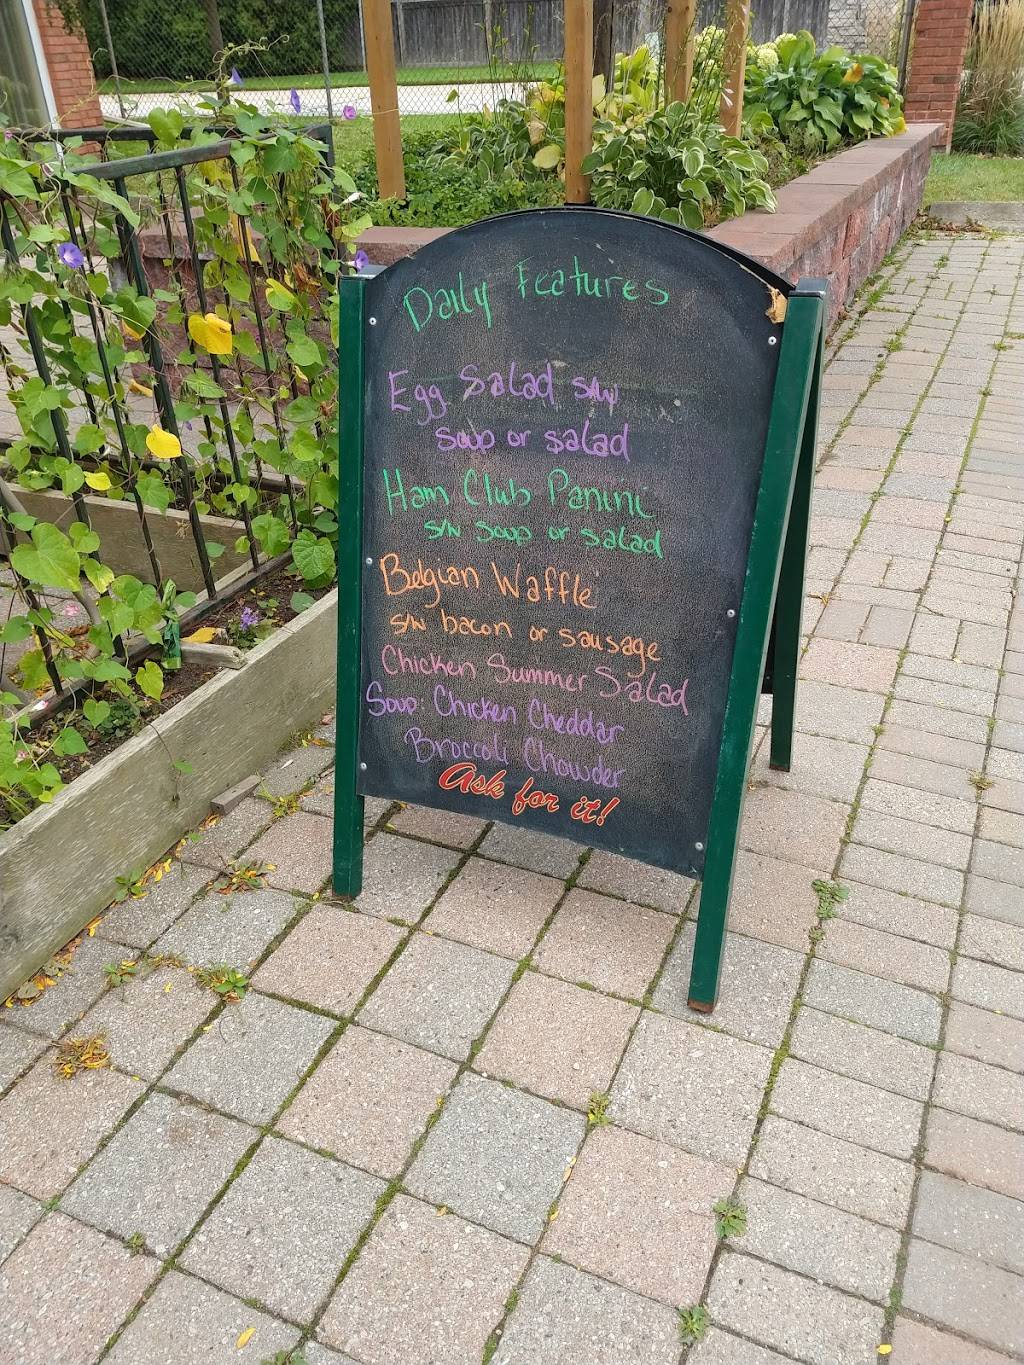 Daily Features
Egg Salad s/w
soup or salad
Ham Club Panini
s/w soup or salad
Belgian Waffle
s/w bacon or sausage
Chicken Summer Salad
Soup: Chicken Cheddar
Broccoli Chowder
Ask for it!